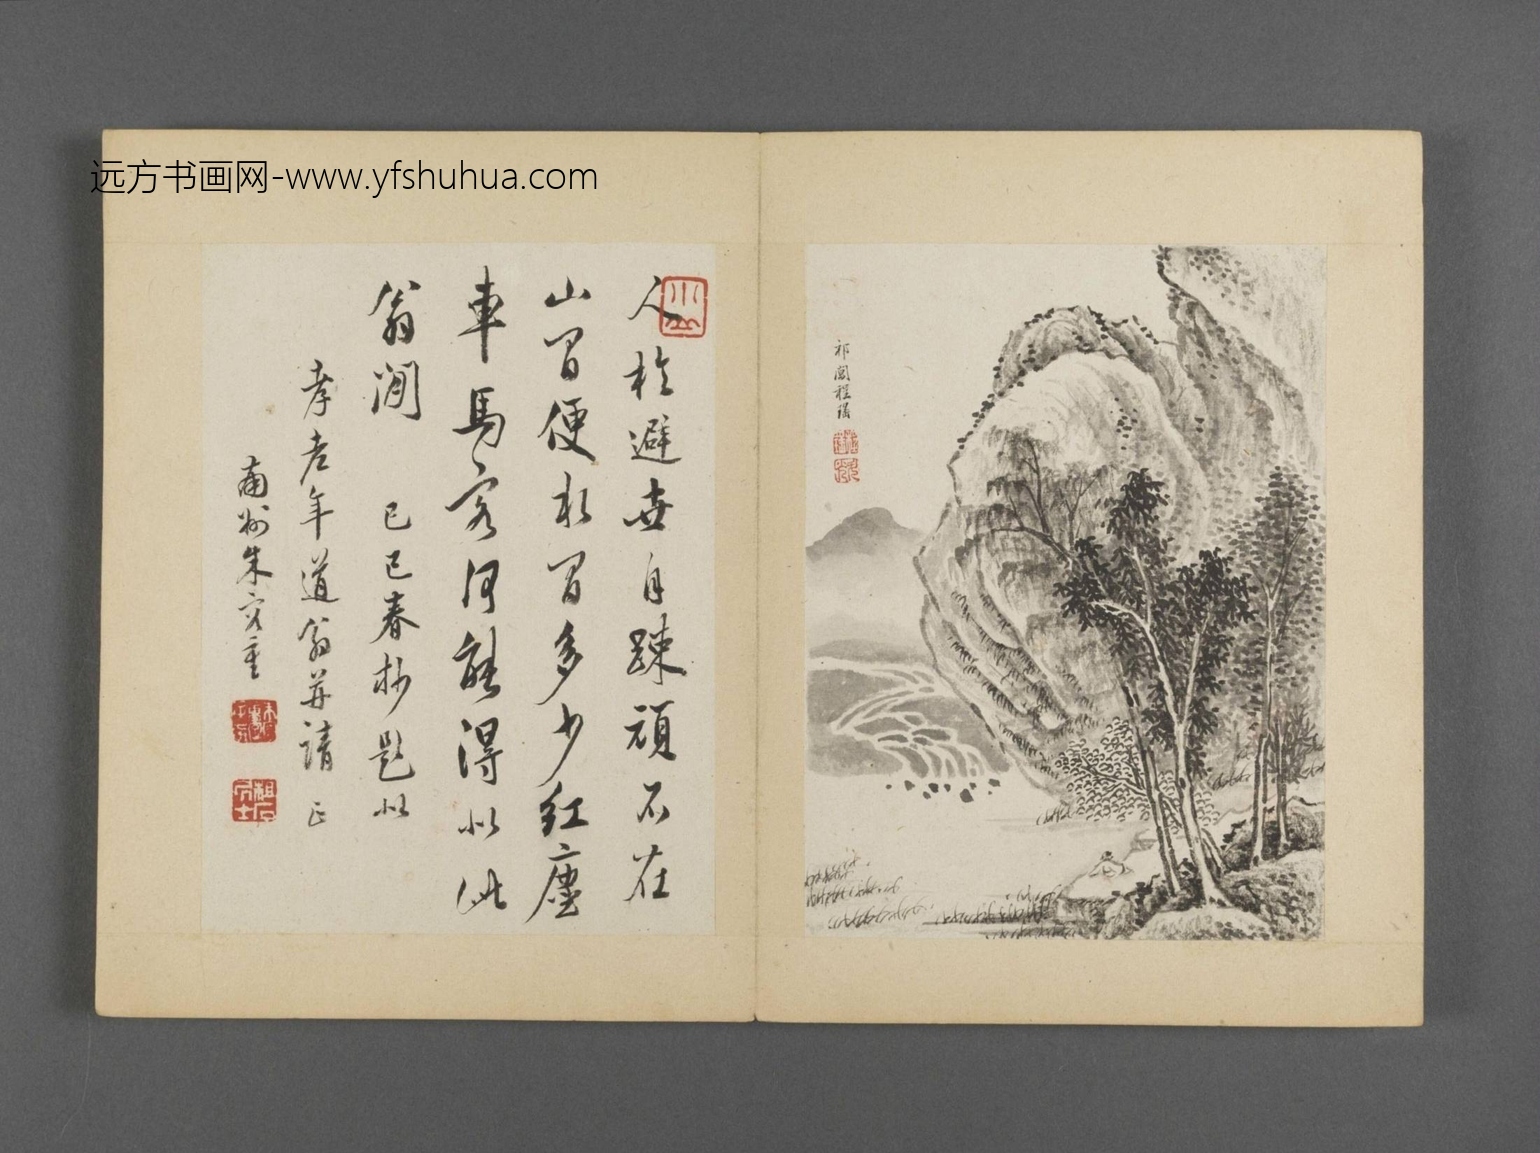 远方书画网-www.yfshuhua.com
祁閶程
人於避世自疎頑不在
山間便水間多少紅塵
車馬客何能得似此
翁閒 己巳春杪題似
孝老年道翁并請 正
南州朱容重